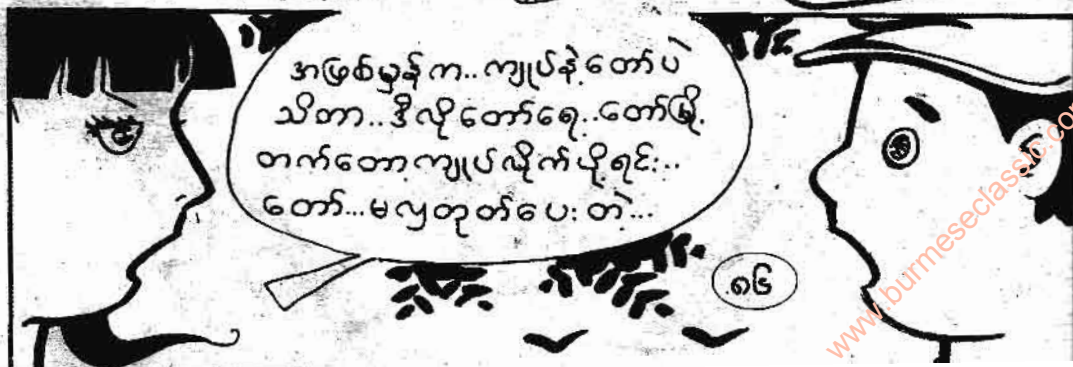 အဖြစ်မှန်က..ကျုပ်နဲ့တော်ပဲ
သိတာ..ဒီလိုတော်ရေ..တော်မြို့
တက်တော့ကျုပ်လိုက်ပို့ရင်း..
တော်...မလှတုတ်ပေးတဲ့...
၈၆
www.burmeseclassic.com